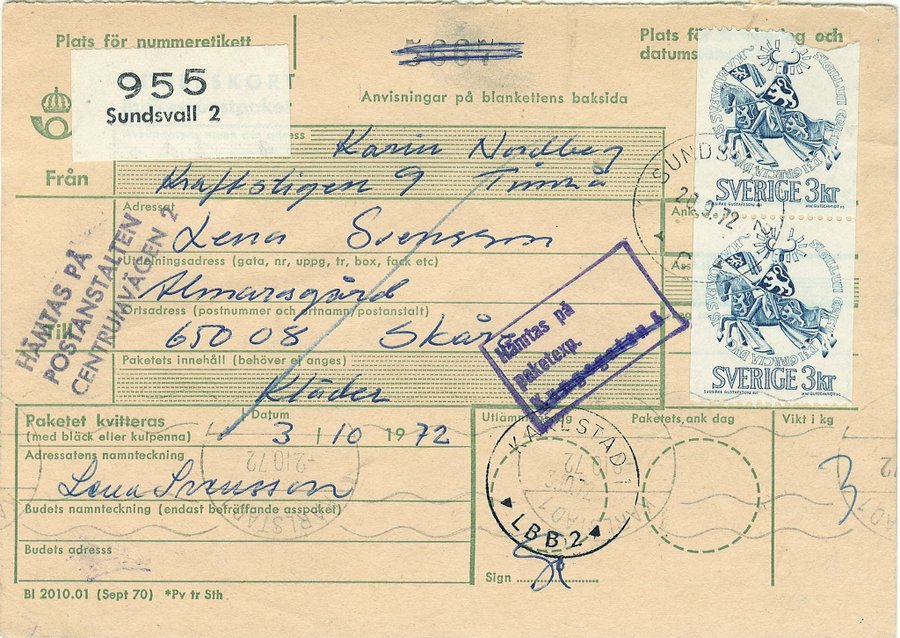 Plats för nummeretikett
955
Sundsvall 2
Anvisningar på blankettens baksida
Plats fö
g och
datums
Från
Karin Nordberg
Kraftstigen 9 Timrå
SUNDS
9.72
SVERIGE 3kr
SVERIGE 3kr
Adressat
Lena Svensson
Utdelningsadress (gata, nr, uppg, tr, box, fack etc)
Almarsgård
Ortsadress (postnummer och ortnamn/postanstalt)
650 08 Skåre
Till
HÄMTAS PÅ
POSTANSTALTEN
CENTRUMVÄGEN 2
Hämtas på
paketexp.
Paketets innehåll (behöver ej anges)
Kläder
Paketet kvitteras
(med bläck eller kulpenna)
Datum
3/10 1972
Utlämning
Paketets, ank dag
Vikt i kg
3
Adressatens namnteckning
Lena Svensson
KARLSTAD 1
LBB 2
-2.10.72
Budets namnteckning (endast beträffande asspaket)
Budets adresss
Sign
BI 2010.01 (Sept 70) *Pv tr Sth